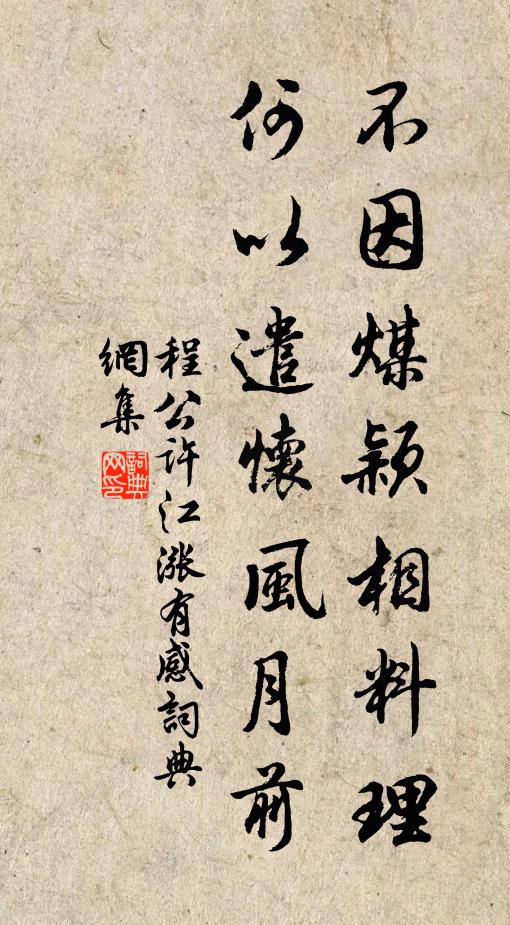 不因煤颖相料理
何以遣懷風月前
程公许江漲有感詞典
網集
詞典
网印